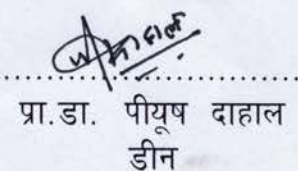 प्रा.डा. पीयूष दाहाल
डीन